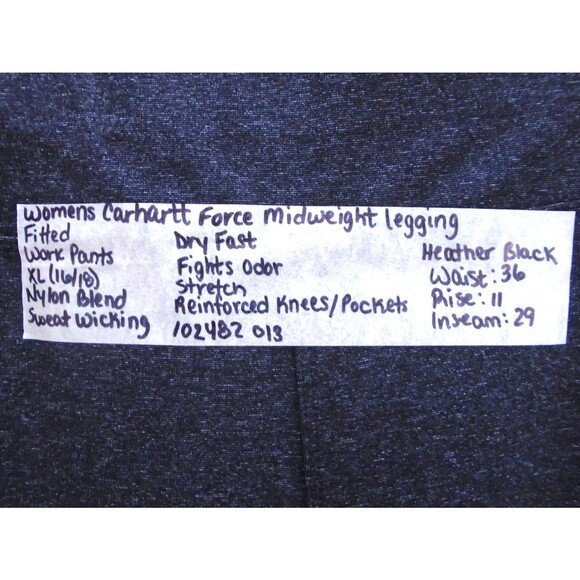 Womens Carhartt Force Midweight Legging
Fitted
Work Pants
XL (16/18)
Nylon Blend
Sweat Wicking
Dry Fast
Fights Odor
Stretch
Reinforced Knees/Pockets
102482 013
Heather Black
Waist: 36
Rise: 11
Inseam: 29